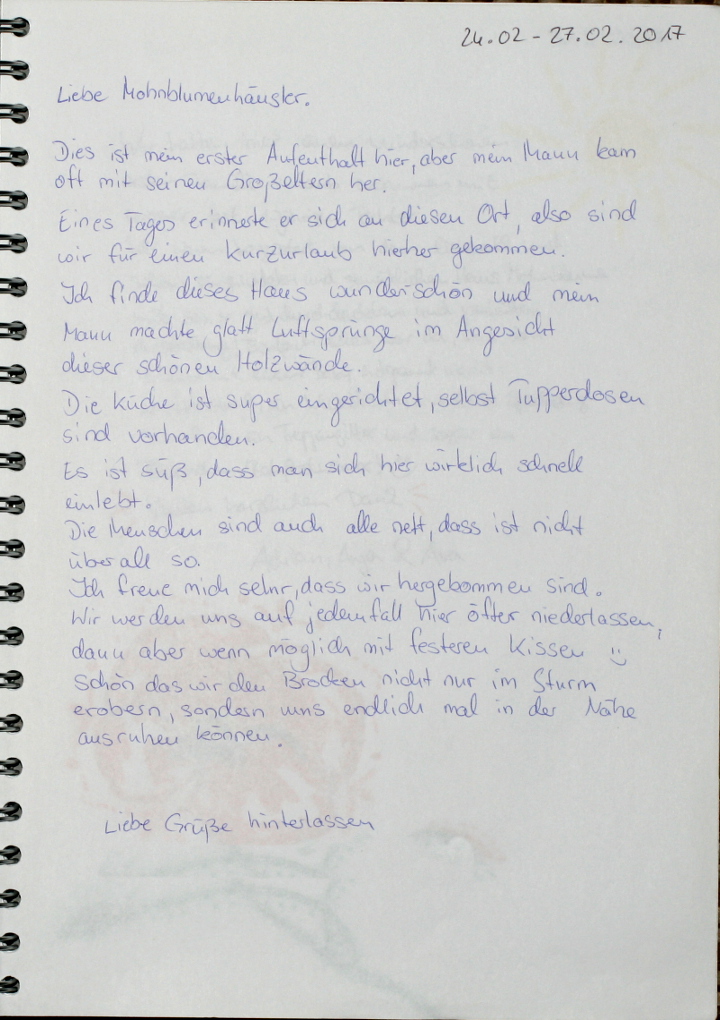 24.02 - 27.02.2017
Liebe Mohnblumenhäusler.
Dies ist mein erster Aufenthalt hier, aber mein Mann kam
oft mit seinen Großeltern her.
Eines Tages erinnerte er sich an diesen Ort, also sind
wir für einen Kurzurlaub hierher gekommen.
Ich finde dieses Haus wunderschön und mein
Mann machte glatt Luftsprünge im Angesicht
dieser schönen Holzwände.
Die Küche ist super eingerichtet, selbst Tupperdosen
sind vorhanden.
Es ist süß, dass man sich hier wirklich schnell
einlebt.
Die Menschen sind auch alle nett, dass ist nicht
überall so.
Ich freue mich sehr, dass wir hergekommen sind.
Wir werden uns auf jedenfall hier öfter niederlassen,
dann aber wenn möglich mit festeren Kissen :)
Schön das wir den Brocken nicht nur im Sturm
erobern, sondern uns endlich mal in der Nähe
ausruhen können.
Liebe Grüße hinterlassen